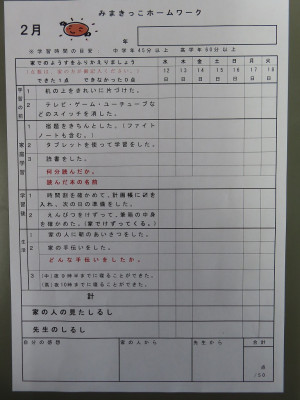 みまきっこホームワーク
2月
年 名前
※学習時間の目安: 中学年45分以上 高学年60分以上
家でのようすをふりかえりましょう
できた1点 できなかった0点
水 木 金 土 日 月 火
12 13 14 15 16 17 18
学習の前
1 机の上をきれいに片づけた。
2 テレビ・ゲーム・ユーチューブなどのスイッチを消した。
家庭学習
1 宿題をきちんとした。(ファイトノートも含む。)
2 タブレットを使って学習をした。
3 読書をした。
何分読んだか。
読んだ本の名前
学習後
1 時間割を確かめて、計画帳に印を入れ、次の日の準備をした。
2 えんぴつをけずって、筆箱の中身を確かめた。(家でけずってくる。)
生活
1 家の人に朝のあいさつをした。
2 家の手伝いをした。
どんな手伝いをしたか。
3 (中)夜9時半までに寝ることができた。
(高)夜10時までに寝ることができた。
計
家の人の見たしるし
先生のしるし
自分の感想 家の人から 先生から 合計
点
/50